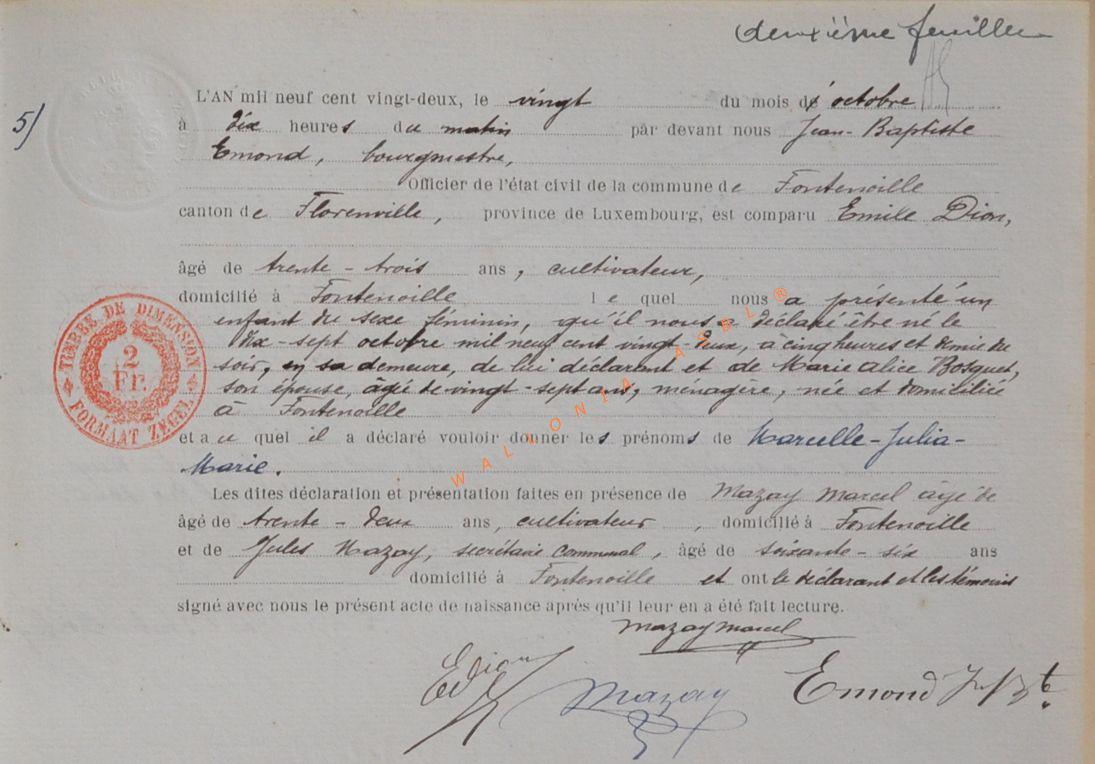 deuxième feuille
5/
L'AN mil neuf cent vingt-deux, le vingt du mois d'octobre
à dix heures du matin par devant nous Jean-Baptiste
Emond, bourgmestre,
Officier de l'état civil de la commune de Fontenoille
canton de Florenville, province de Luxembourg, est comparu Emile Dion,
âgé de trente-trois ans, cultivateur,
domicilié à Fontenoille lequel nous a présenté un
enfant du sexe féminin, qu'il nous a déclaré être né le
dix-sept octobre mil neuf cent vingt-deux, a cinq heures et demie du
soir, en sa demeure, de lui déclarant et de Marie Alice Bosquet,
son épouse, âgée de vingt-sept ans, ménagère, née et domiciliée
à Fontenoille
et auquel il a déclaré vouloir donner les prénoms de Marcelle-Julia-
Marie.
Les dites déclaration et présentation faites en présence de Mazay Marcel âgé de
âgé de trente-deux ans, cultivateur, domicilié à Fontenoille
et de Jules Mazay, secrétaire communal, âgé de soixante-six ans
domicilié à Fontenoille et ont le déclarant et les témoins
signé avec nous le présent acte de naissance après qu'il leur en a été fait lecture.
Mazay Marcel
EDion Mazay Emond
TIMBRE DE DIMENSION
2
Fr.
FORMAAT ZEGEL
WALLONIA ASBL ®